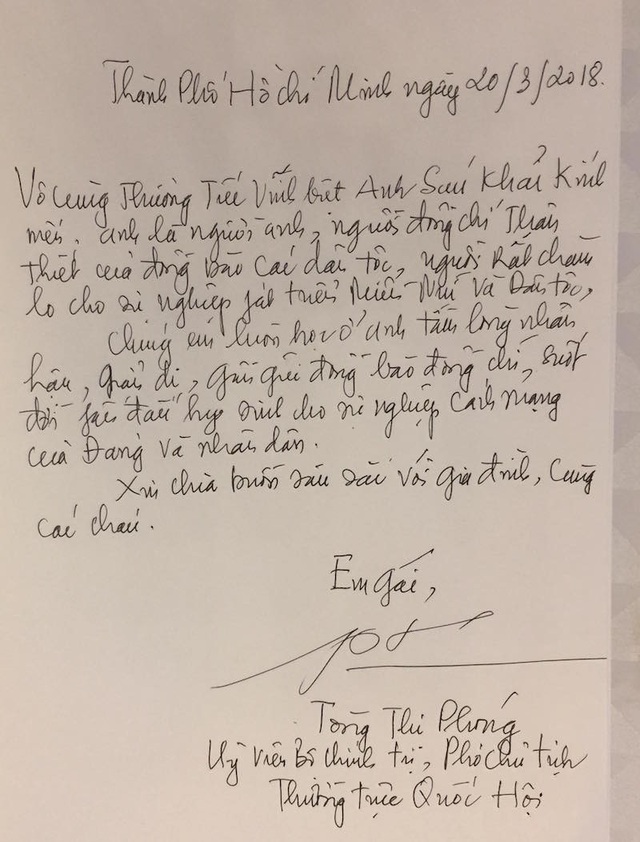 Thành Phố Hồ Chí Minh ngày 20/3/2018.
Vô cùng Thương Tiếc Vĩnh biệt Anh Sáu Khải Kính
mến. Anh là người anh, người đồng chí Thân
thiết của đồng bào các dân tộc, người Rất chăm
lo cho sự nghiệp phát triển Miền Núi và Dân tộc,
Chúng em luôn học ở anh tấm lòng nhân
hậu, giản dị, gần gũi đồng bào đồng chí, suốt
đời phấn đấu hy sinh cho sự nghiệp Cách mạng
của Đảng và nhân dân.
Xin chia buồn sâu sắc với gia đình, Cùng
các cháu.
Em gái,
Tòng Thị Phóng
Uỷ viên Bộ chính trị, Phó chủ tịch
Thường trực Quốc Hội